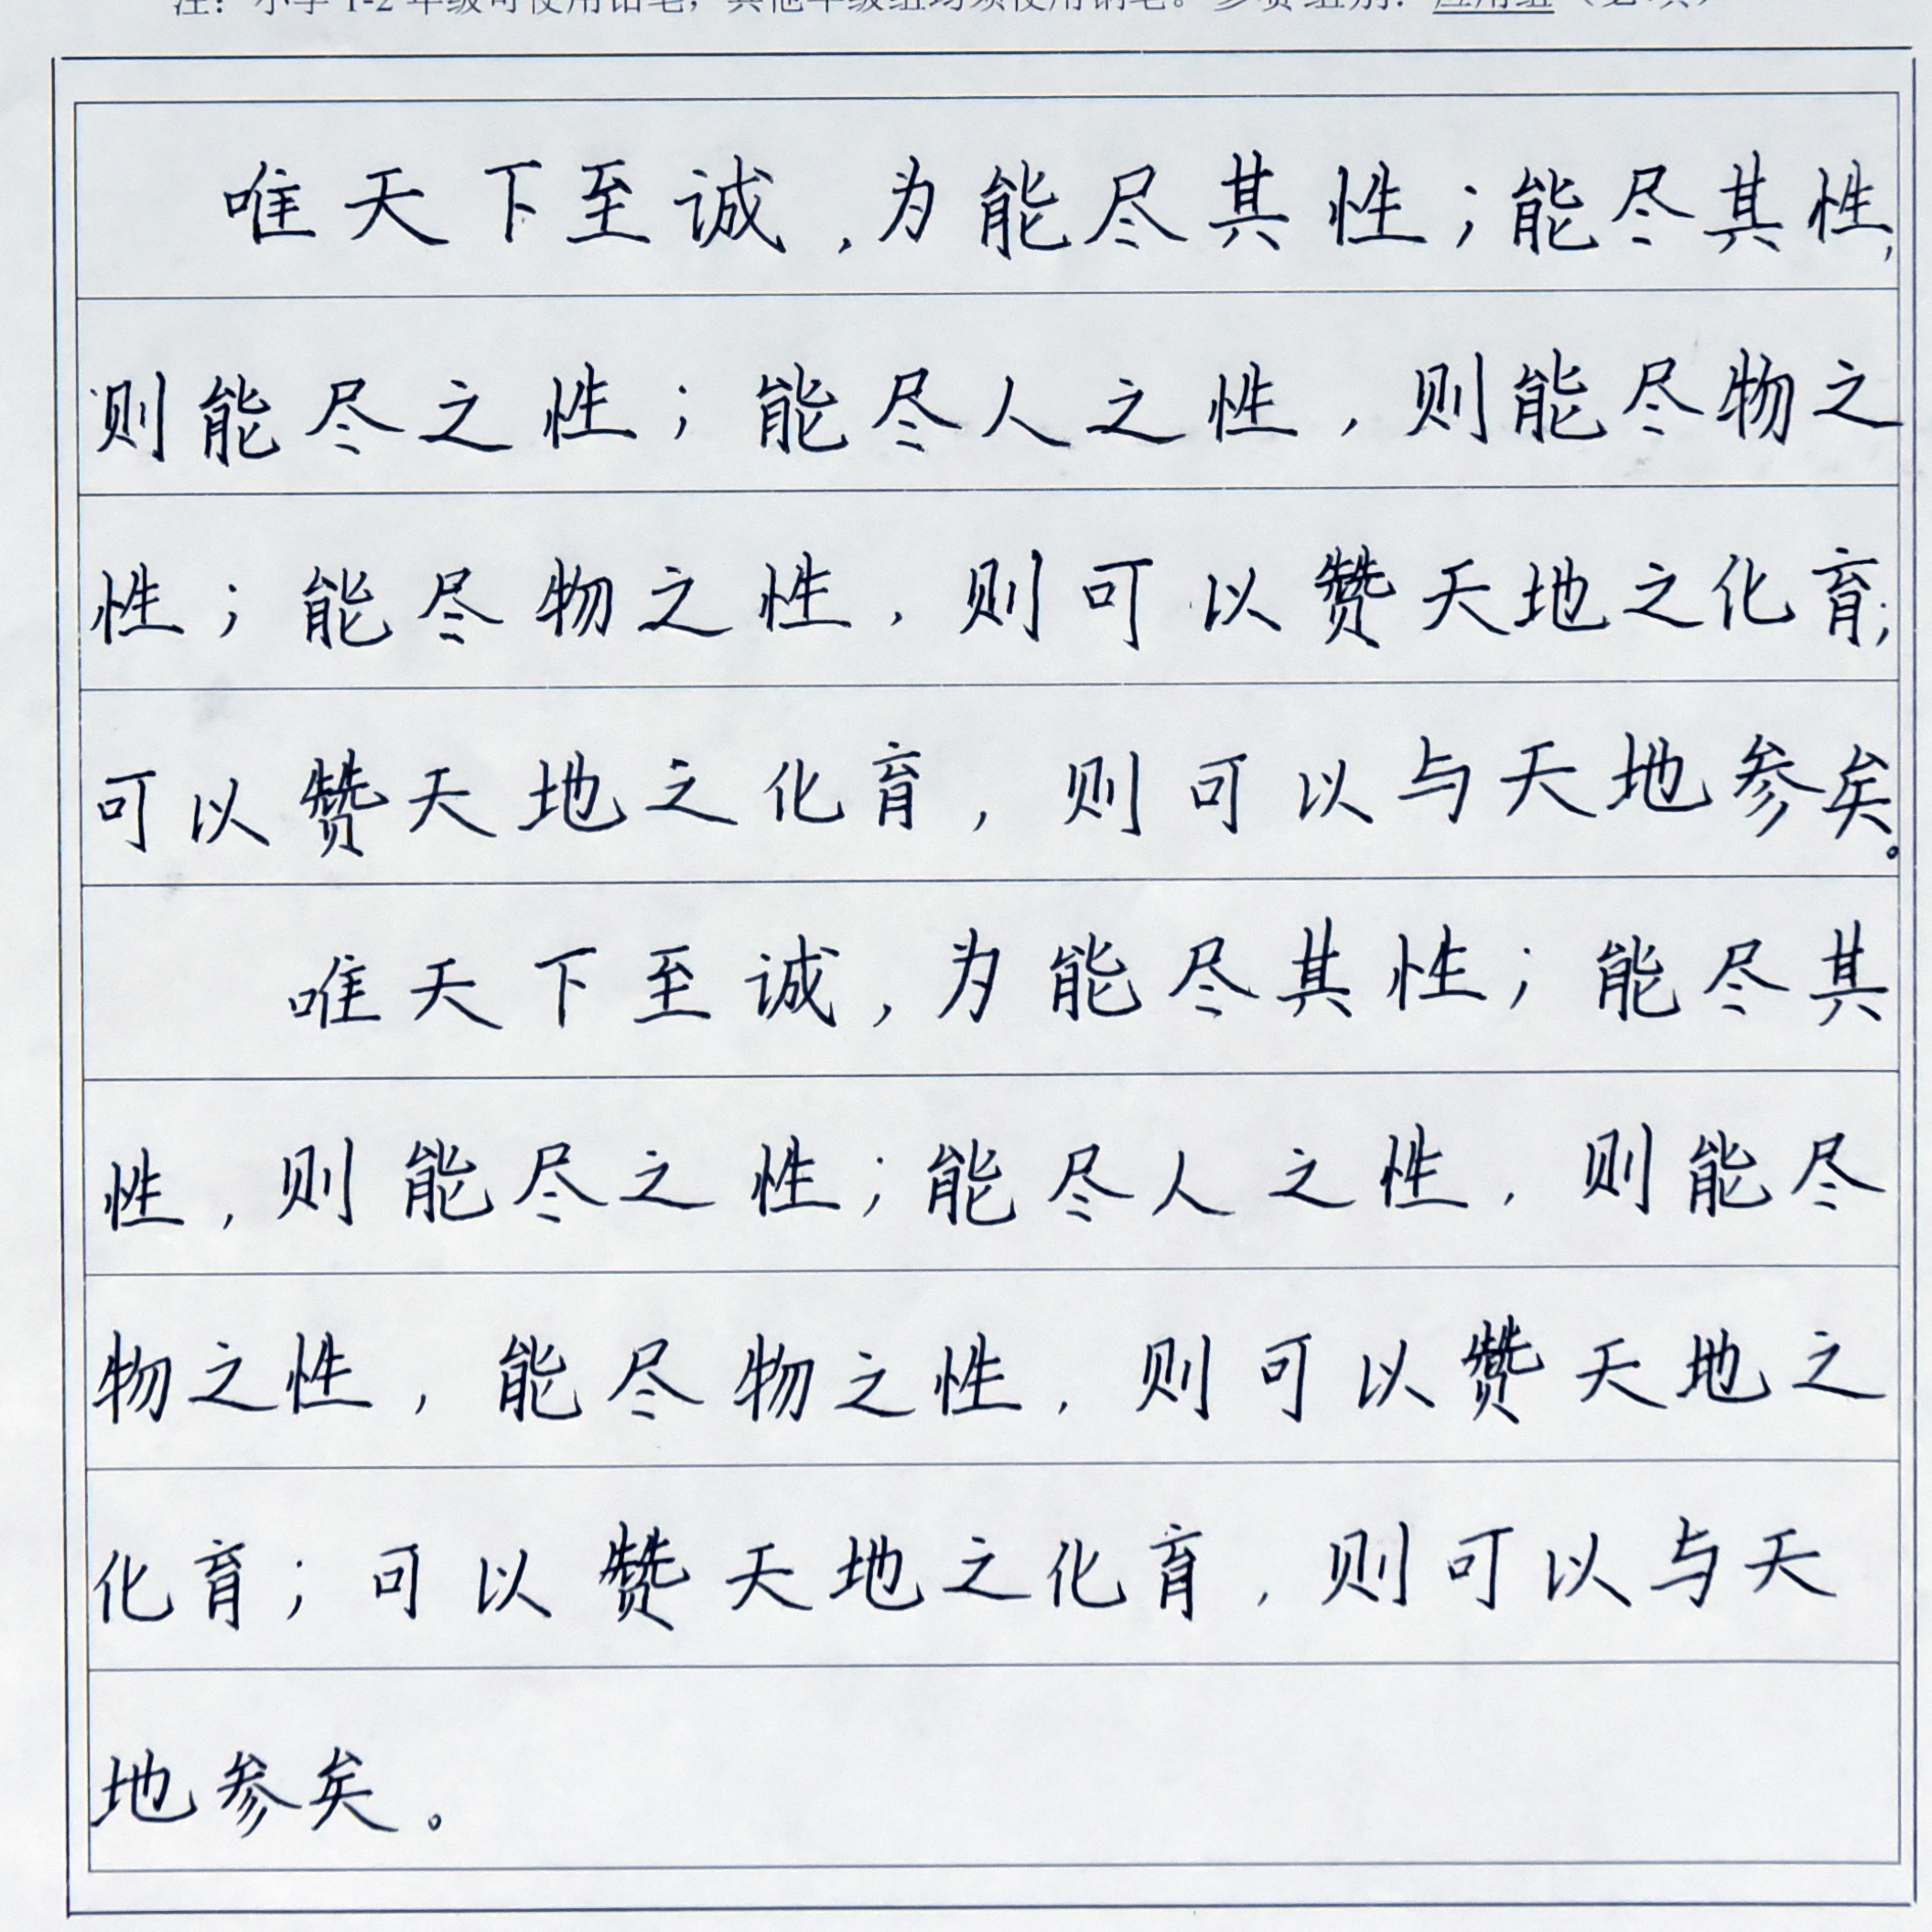 注：小学1-2年级可使用铅笔，其他年级组均须使用钢笔。参赛组别：应用组（必填）
唯天下至诚，为能尽其性；能尽其性，
则能尽之性；能尽人之性，则能尽物之
性；能尽物之性，则可以赞天地之化育；
可以赞天地之化育，则可以与天地参矣。
唯天下至诚，为能尽其性；能尽其
性，则能尽之性；能尽人之性，则能尽
物之性，能尽物之性，则可以赞天地之
化育；可以赞天地之化育，则可以与天
地参矣。